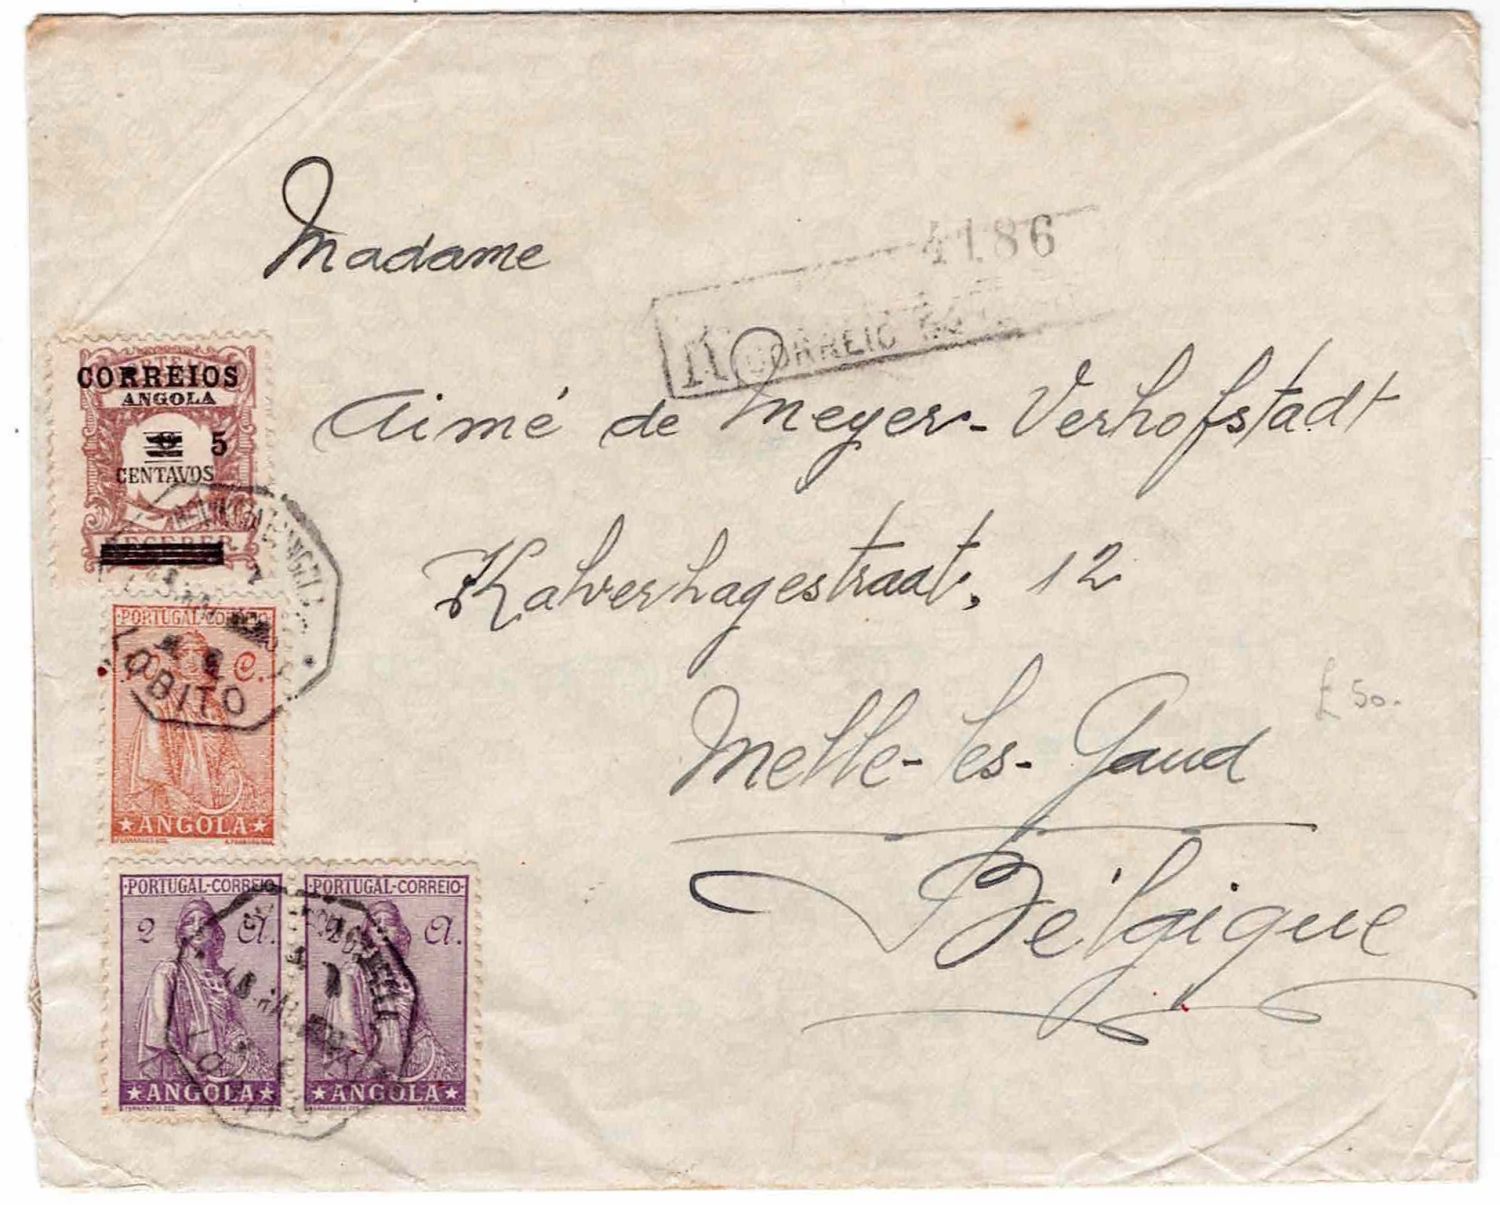 Madame
4186
R CORREIO
Aimé de Meyer-Verhofstadt
Kalverhagestraat, 12
Melle-les-Gand
Bélgique
£ 50.
CORREIOS
ANGOLA
5
CENTAVOS
RECEBER
LOBITO
PORTUGAL-CORREIO
C.
★ANGOLA★
PORTUGAL-CORREIO PORTUGAL-CORREIO
2 A. 2 A.
★ANGOLA★ ★ANGOLA★